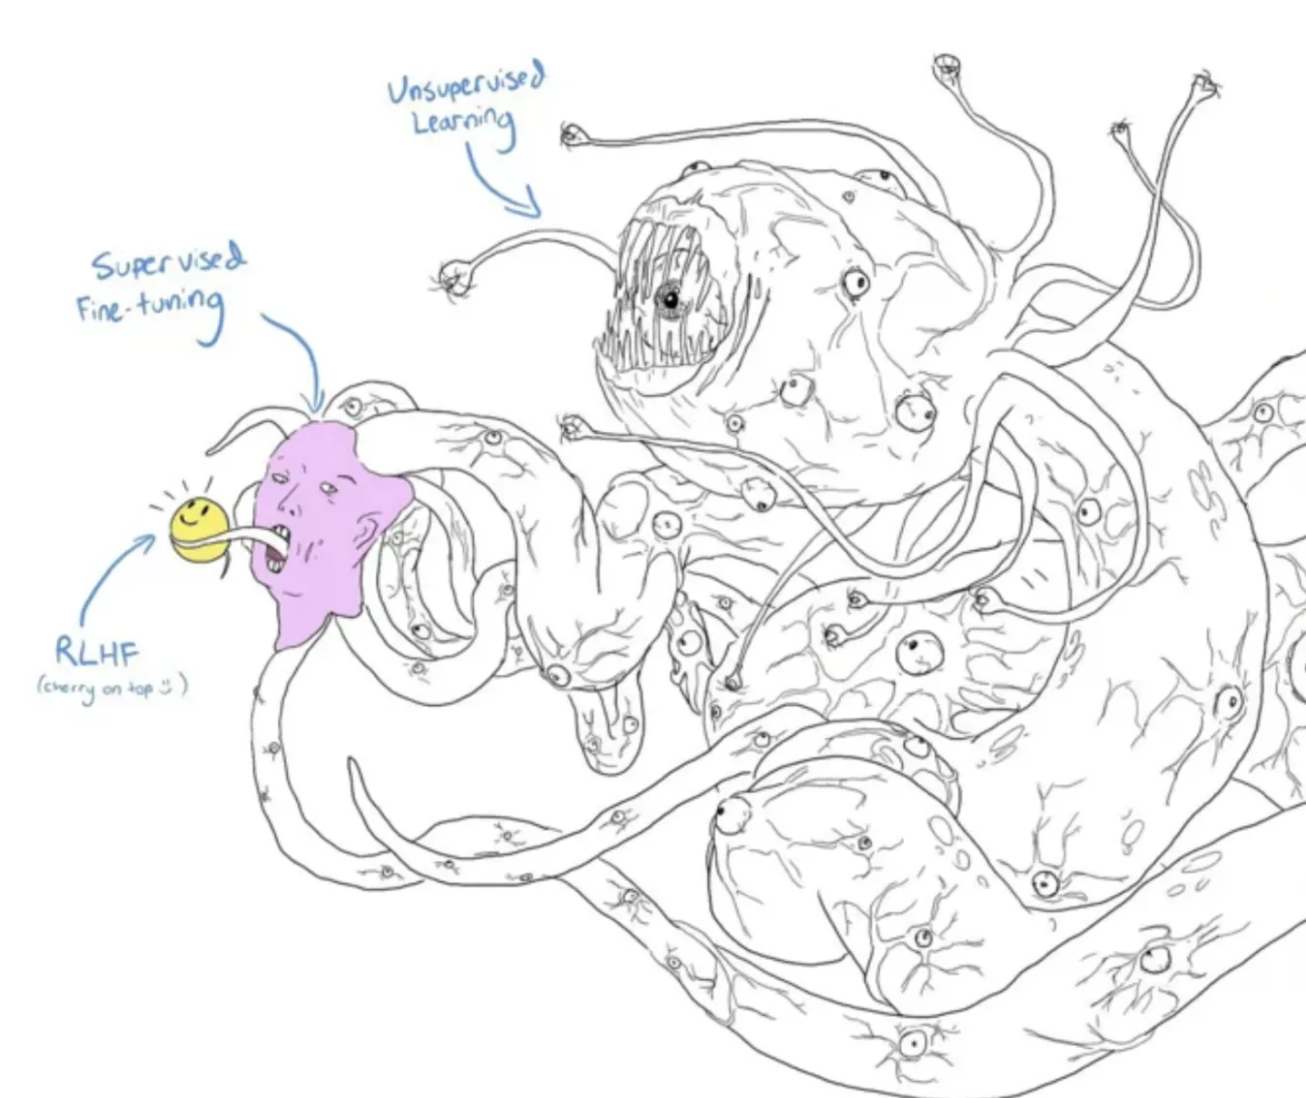 Unsupervised
Learning
Supervised
Fine-tuning
RLHF
(cherry on top :))